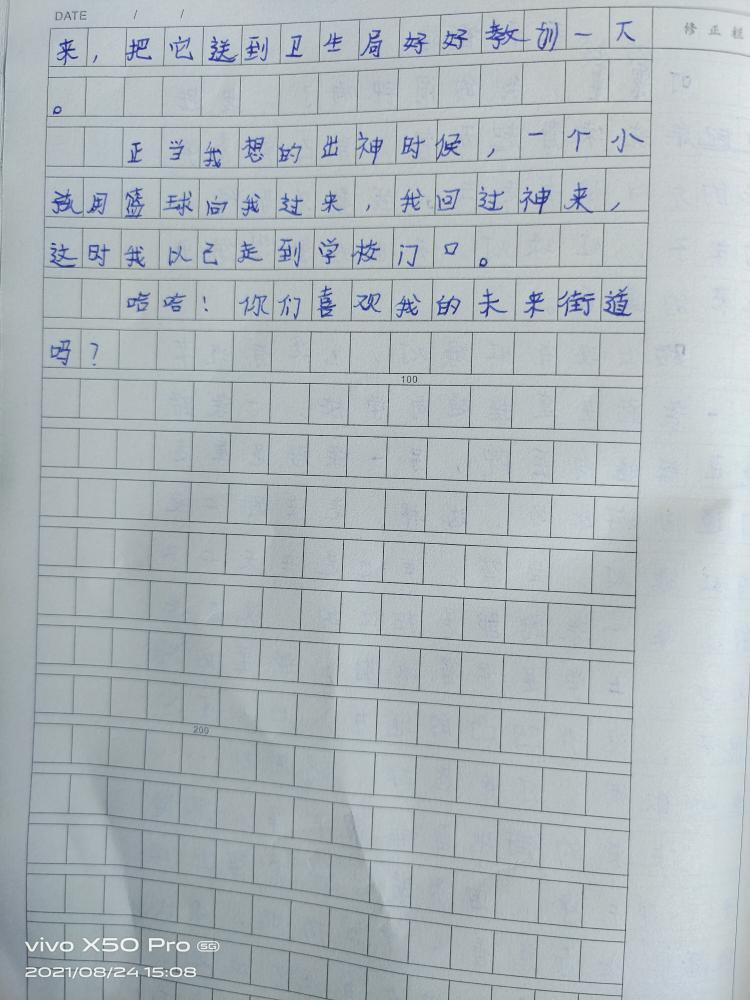 DATE / /
修正栏
来，把它送到卫生局好好教训一下
。
正当我想的出神时候，一个小
孩用篮球向我过来，我回过神来，
这时我以己走到学校门口。
哈哈！你们喜欢我的未来街道
吗？
100
200
vivo X50 Pro 5G
2021/08/24 15:08